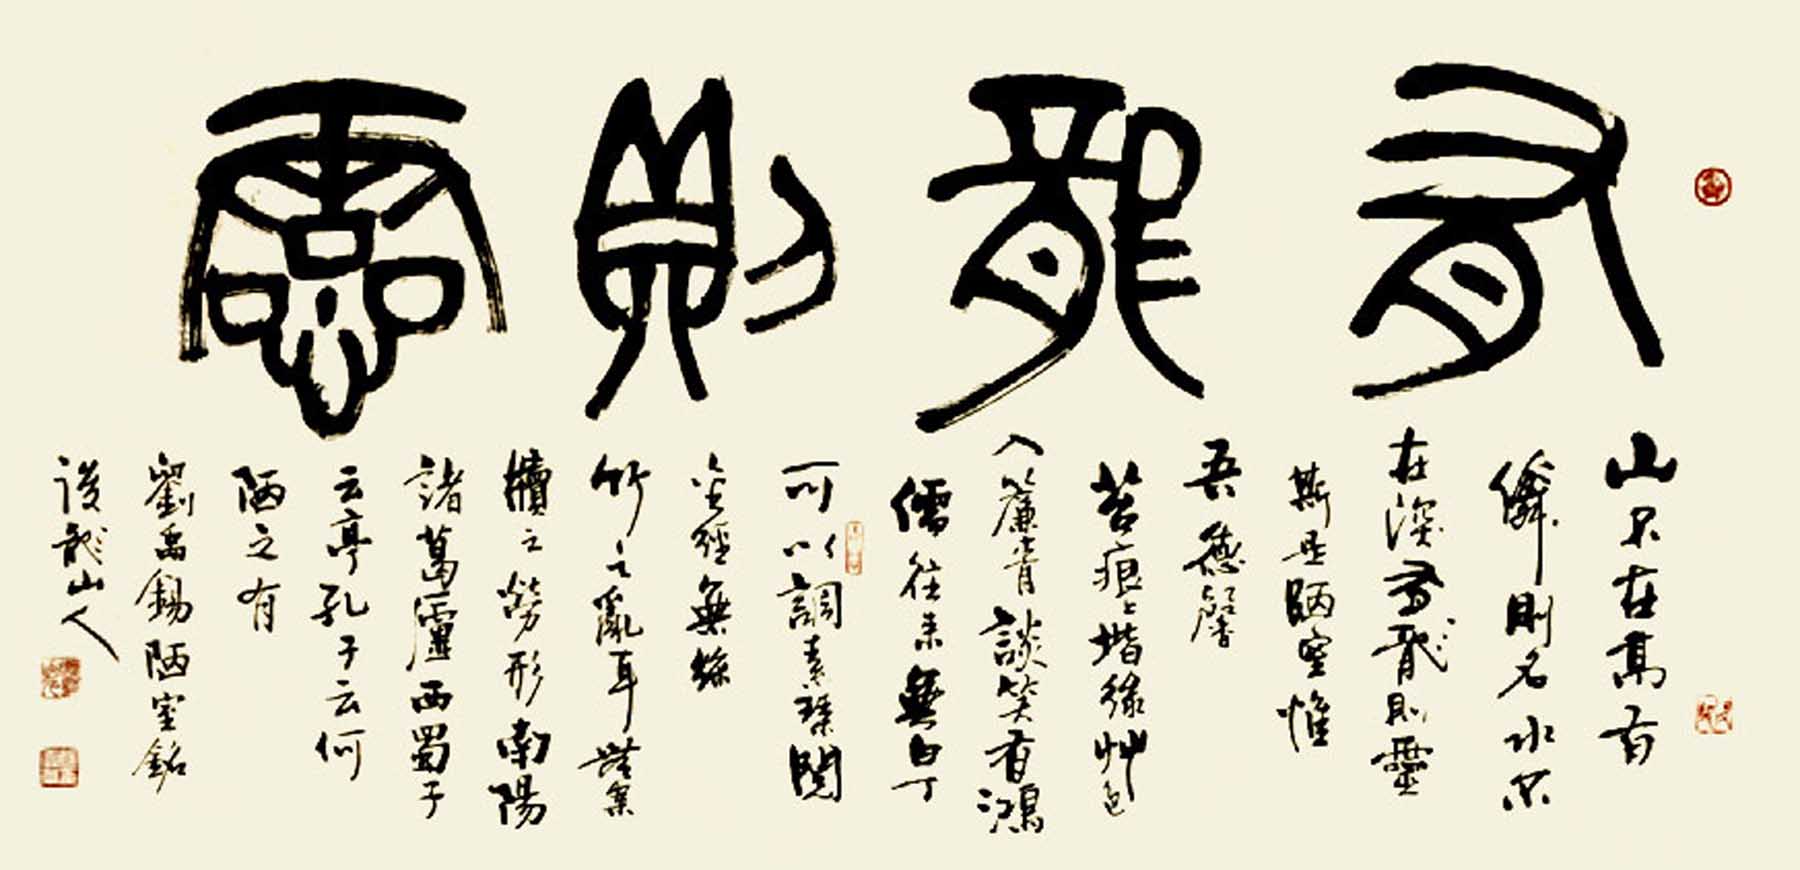 有龍則靈
山不在高有
僊則名水不
在深有龍則靈
斯是陋室惟
吾德馨
苔痕上堦綠艸色
入簾青談笑有鴻
儒往來無白丁
可以調素琴閱
金經無絲
竹之亂耳無案
牘之勞形南陽
諸葛廬西蜀子
云亭孔子云何
陋之有
劉禹錫陋室銘
龍山人